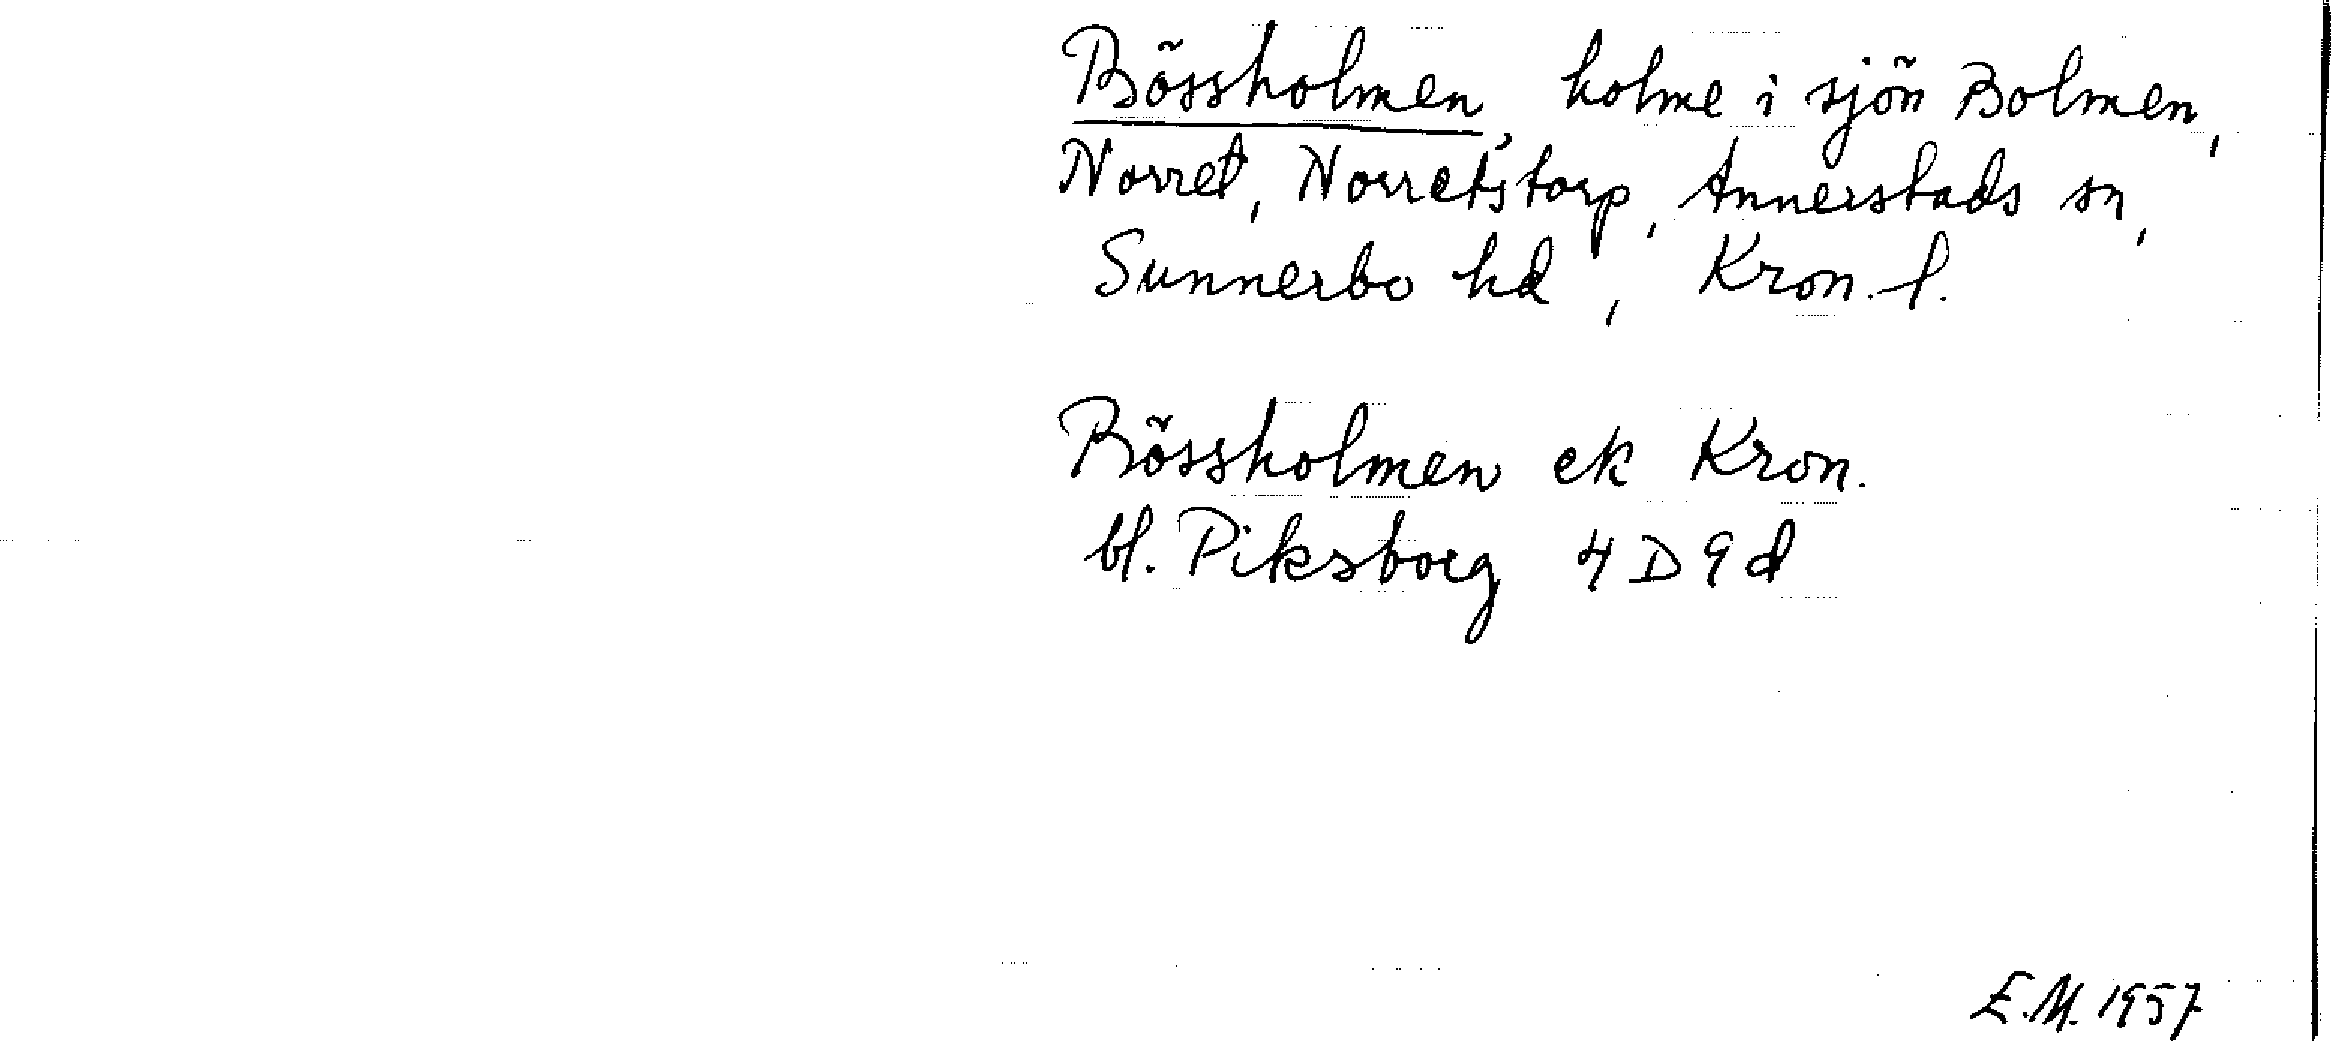 Bössholmen, holme i sjön Bolmen,
Norret, Norretstorp, Annerstads sn,
Sunnerbo hd, Kron. l.
Bössholmen ek Kron.
bl. Piksborg 4D9d
E.M. 1957